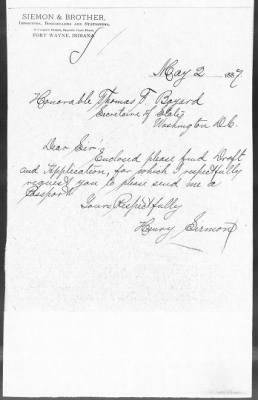 SIEMON & BROTHER,
IMPORTERS, BOOKSELLERS AND STATIONERS,
FORT WAYNE, INDIANA.
May 2 1887.
Honorable Thomas F. Bayard
Secretaire of State,
Washington D.C.
Dear Sir:
Enclosed please find Draft
and Application, for which I respectfully
request you to please send me a
Passport.
Yours Respectfully
Henry Siemon